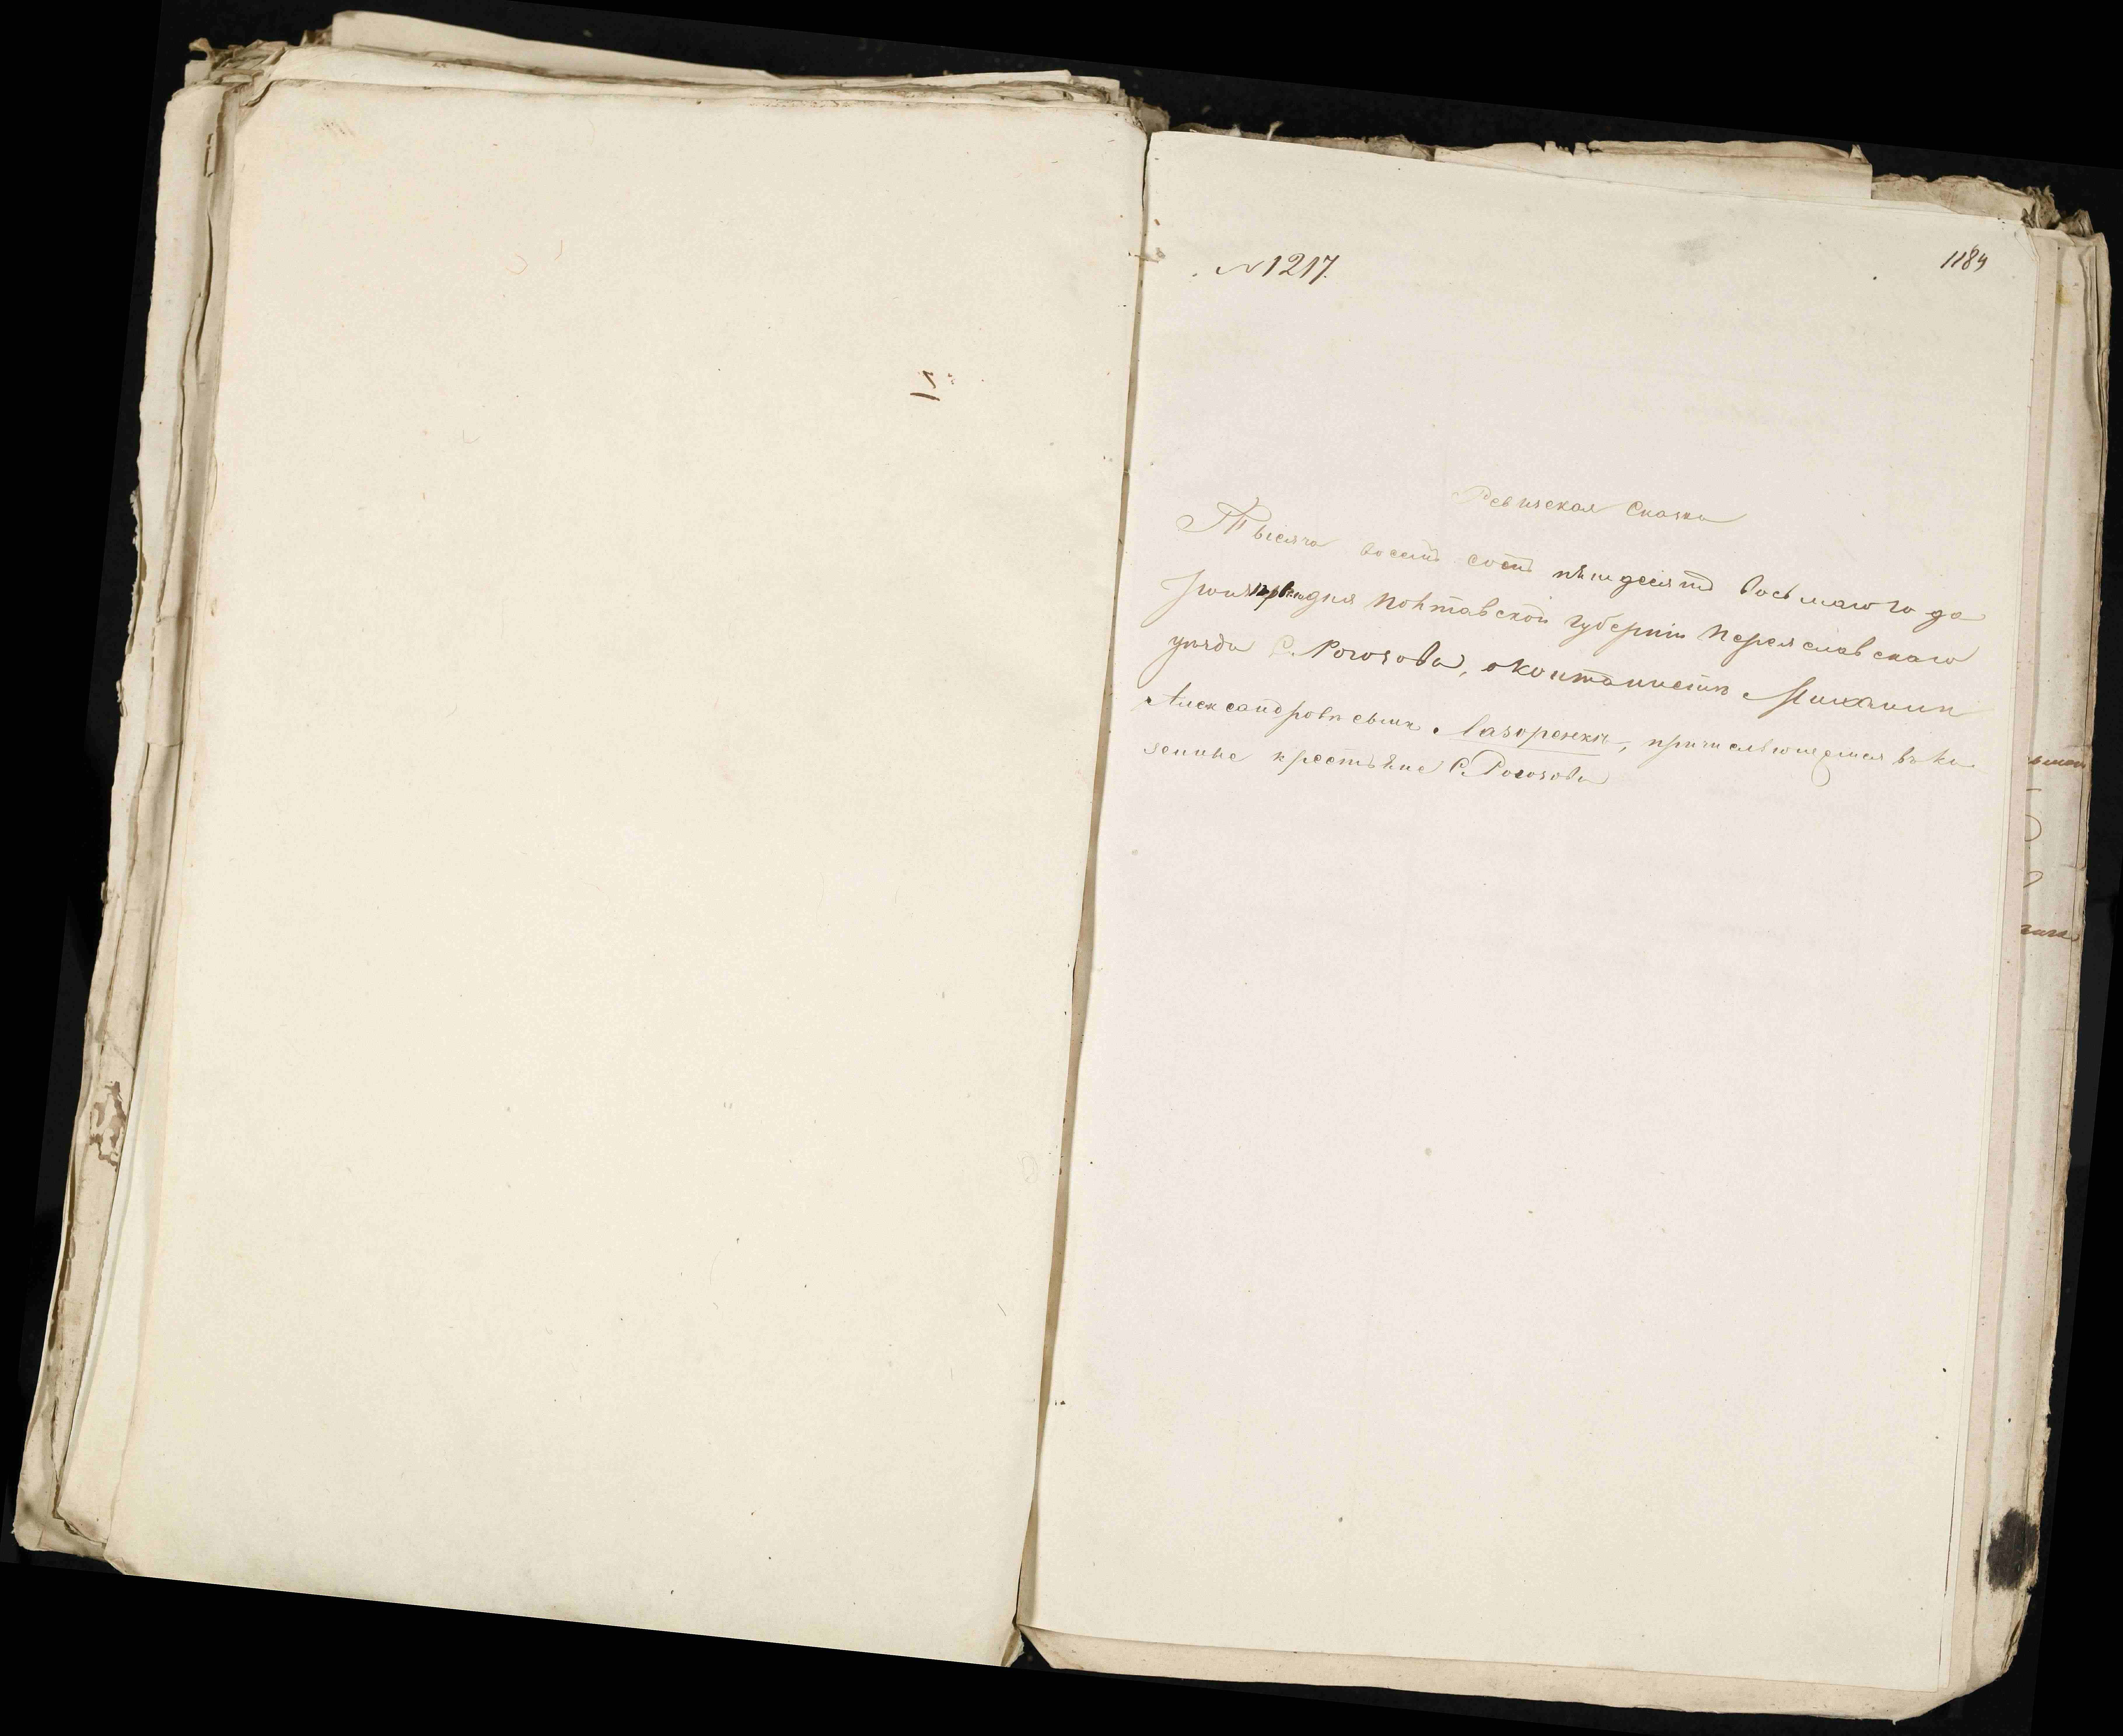 № 1217.
1184
Ревизская Сказка
Тысяча восемъ сотъ пятьдесятъ восьмаго го да
Іюня дня Полтавской губерніи Переяславскаго
уѣзда С. Рогозова, о кантонистѣ Михаилѣ
Александровѣ сынѣ Лазоренкѣ, причисляющемся въ ка
зенные крестьяне С. Рогозова